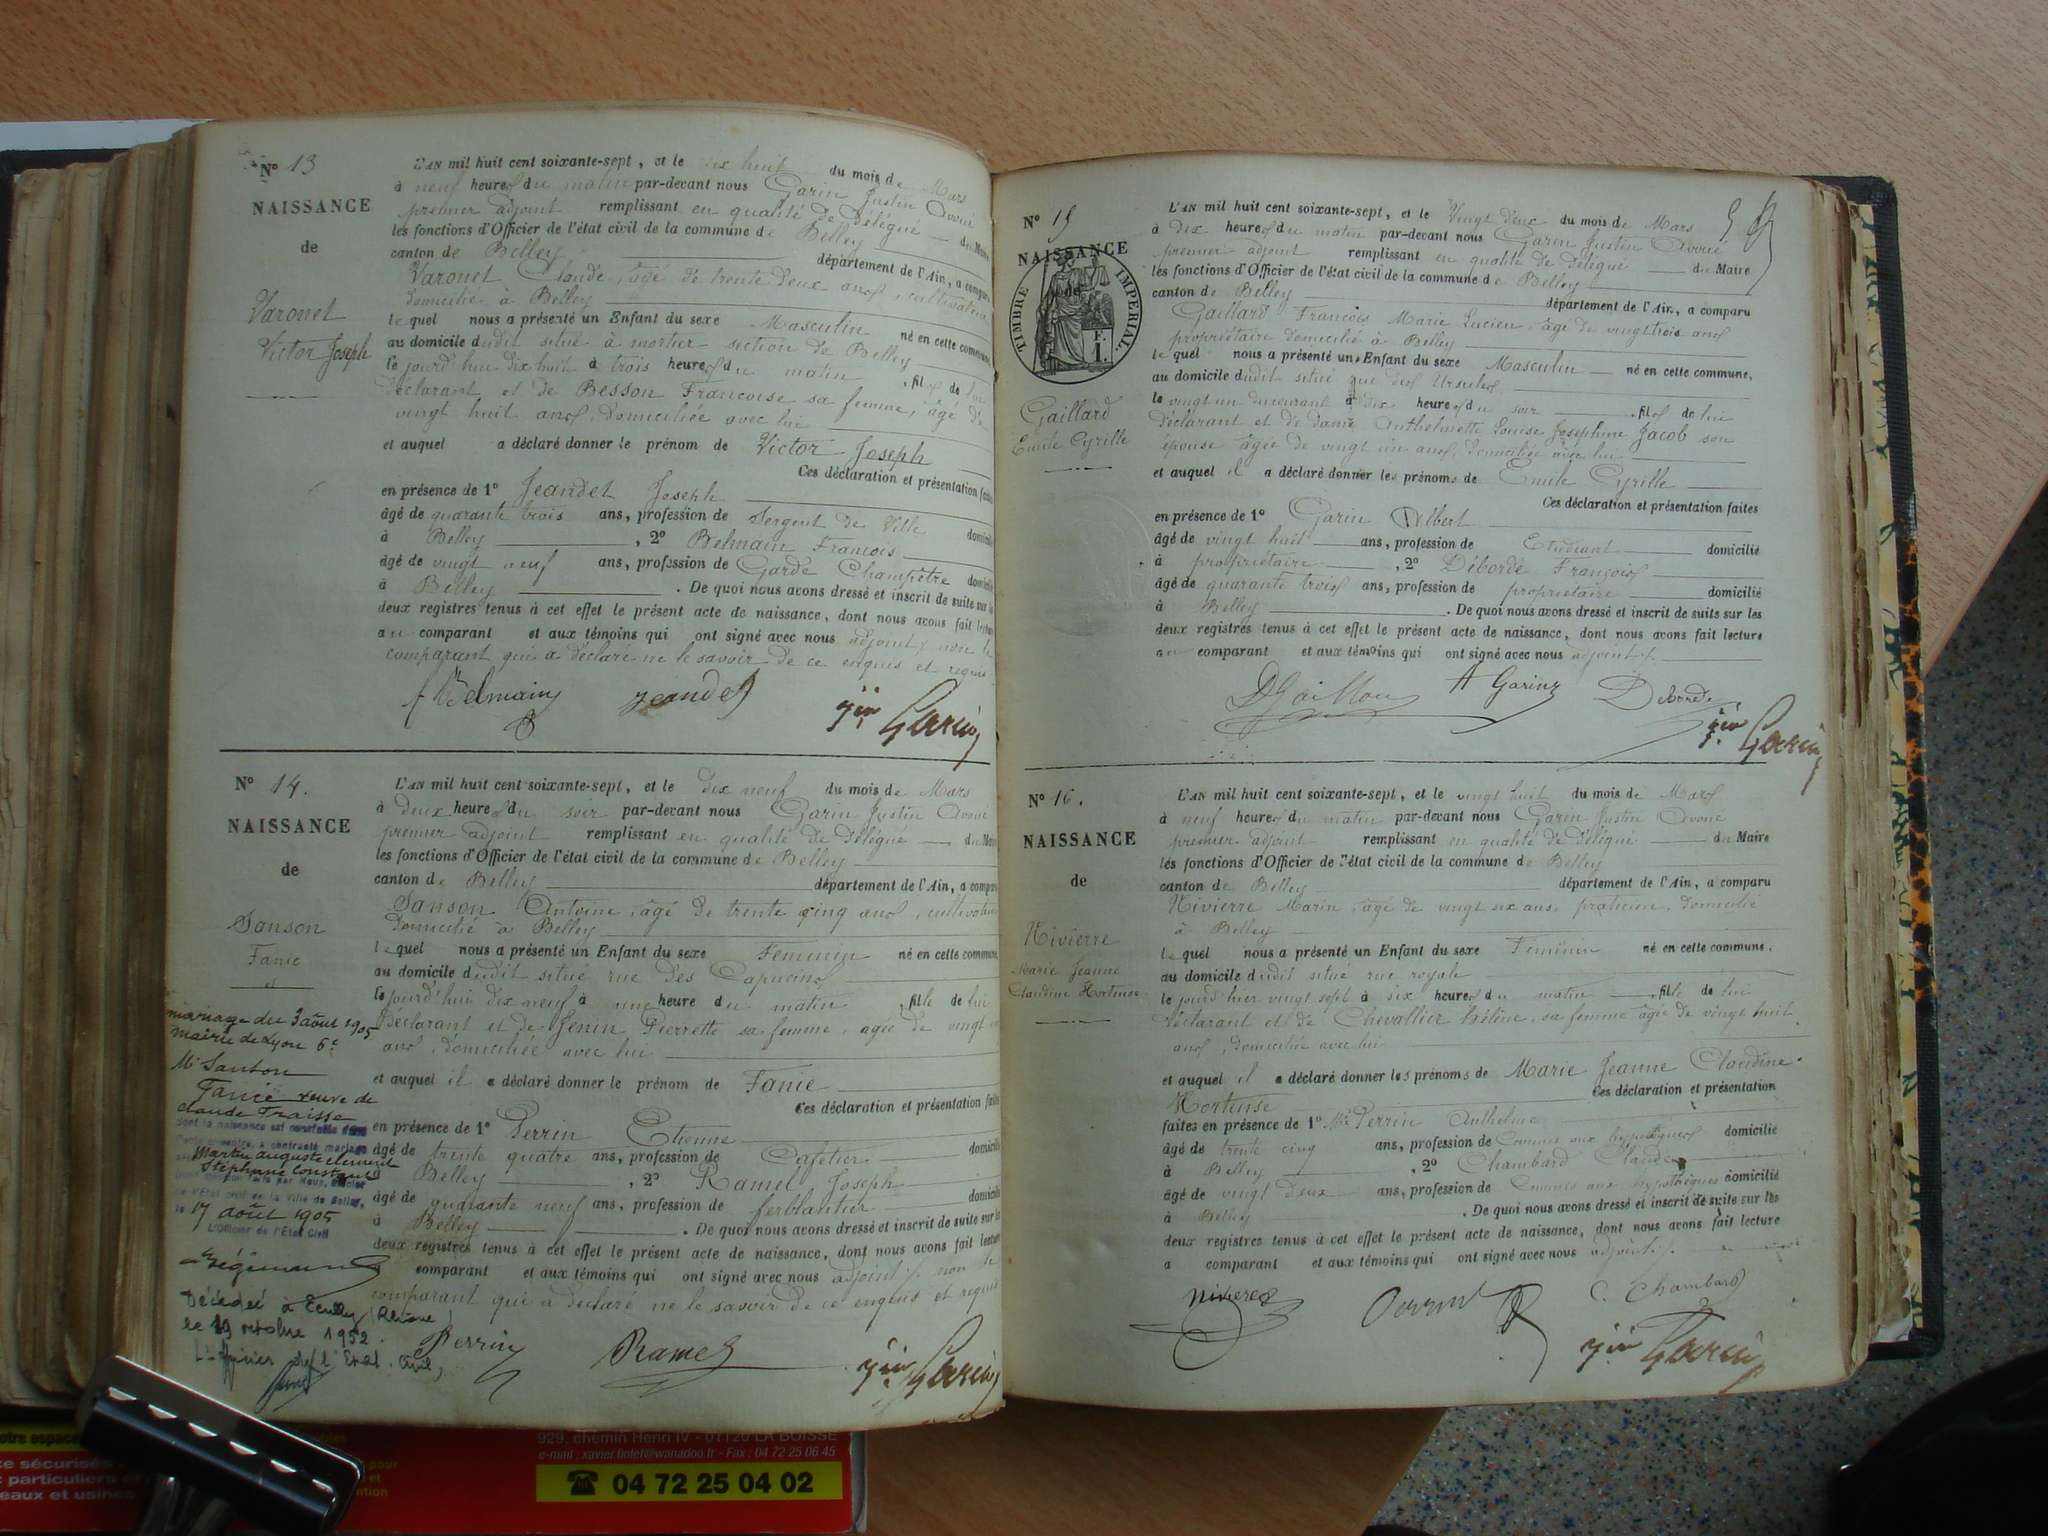 N° 13
NAISSANCE
de
Varonet
Victor Joseph
L'AN mil huit cent soixante-sept, et le dix huit du mois de Mars
à neuf heures du matin par-devant nous Garin Justin Avoué
premier adjoint remplissant en qualité de Délégué du Maire
les fonctions d'Officier de l'état civil de la commune de Belley
canton de Belley département de l'Ain, a comparu
Varonet Claude, âgé de trente deux ans, cultivateur
domicilié à Belley
lequel nous a présenté un Enfant du sexe Masculin né en cette commune
au domicile dudit situé à mortier section de Belley
le jourd'hui dix huit à trois heures du matin, fils de lui
déclarant et de Besson Françoise sa femme, âgé de
vingt huit ans, domiciliée avec lui
et auquel a déclaré donner le prénom de Victor Joseph
Ces déclaration et présentation faites
en présence de 1° Jeandet Joseph
âgé de quarante trois ans, profession de Sergent de Ville domicilié
à Belley, 2° Belmain François
âgé de vingt neuf ans, profession de Garde Champêtre domicilié
à Belley. De quoi nous avons dressé et inscrit de suite sur les
deux registres tenus à cet effet le présent acte de naissance, dont nous avons fait lecture
au comparant et aux témoins qui ont signé avec nous adjoint, non le
comparant qui a déclaré ne le savoir de ce enquis et requis
f Belmain Jeandet Jin Garin
N° 14.
NAISSANCE
de
Sanson
Fanie
L'AN mil huit cent soixante-sept, et le dix neuf du mois de Mars
à deux heures du soir par-devant nous Garin Justin Avoué
premier adjoint remplissant en qualité de Délégué du Maire
les fonctions d'Officier de l'état civil de la commune de Belley
canton de Belley département de l'Ain, a comparu
Sanson Antoine, âgé de trente cinq ans, cultivateur
domicilié à Belley
lequel nous a présenté un Enfant du sexe Féminin né en cette commune,
au domicile dudit situé rue des Capucins
le jourd'hui dix neuf à une heure du matin, fille de lui
déclarant et de Jenin Pierrette sa femme, agée de vingt
ans, domiciliée avec lui
et auquel il a déclaré donner le prénom de Fanie
Ces déclaration et présentation faites
en présence de 1° Perrin Etienne
âgé de trente quatre ans, profession de Cafetier domicilié
à Belley, 2° Ramel Joseph
âgé de quarante neuf ans, profession de ferblantier domicilié
à Belley. De quoi nous avons dressé et inscrit de suite sur les
deux registres tenus à cet effet le présent acte de naissance, dont nous avons fait lecture
comparant et aux témoins qui ont signé avec nous adjoint, non le
comparant qui a déclaré ne le savoir de ce enquis et requis
Perrin Ramel Jin Garin
mariage du 3 août 1905
mairie de Lyon 6e
Mr Sanson
Fanie veuve de
Claude Fraisse
dont la naissance est constatée dans
l'acte ci-contre, a contracté mariage
Martin Auguste Clément
Stéphane Constant
faite par Nous, Officier
de l'Etat civil de la Ville de Belley,
le 17 août 1905
L'Officier de l'Etat Civil
Décédée à Ecully (Rhône)
le 19 octobre 1952.
L'officier de l'Etat Civil,
N° 15
NAISSANCE
de
TIMBRE IMPERIAL
F.
1.
Gaillard
Emile Cyrille
L'AN mil huit cent soixante-sept, et le Vingt deux du mois de Mars
à dix heures du matin par-devant nous Garin Justin Avoué
premier adjoint remplissant en qualité de Délégué du Maire
les fonctions d'Officier de l'état civil de la commune de Belley
canton de Belley département de l'Ain, a comparu
Gaillard François Marie Lucien, âgé de vingt trois ans
propriétaire domicilié à Belley
lequel nous a présenté un Enfant du sexe Masculin né en cette commune,
au domicile dudit situé rue des Ursules
le vingt un du courant à dix heures du soir, fils de lui
déclarant et de dame Anthelmette Louise Josephine Jacob son
épouse âgée de vingt un ans, domiciliée avec lui
et auquel il a déclaré donner les prénoms de Emile Cyrille
Ces déclaration et présentation faites
en présence de 1° Garin Albert
âgé de vingt huit ans, profession de Etudiant domicilié
à propriétaire, 2° Déborde François
âgé de quarante trois ans, profession de propriétaire domicilié
à Belley. De quoi nous avons dressé et inscrit de suite sur les
deux registres tenus à cet effet le présent acte de naissance, dont nous avons fait lecture
au comparant et aux témoins qui ont signé avec nous adjoint
Gaillard A Garin Deborde Jin Garin
N° 16.
NAISSANCE
de
Nivierre
Marie Jeanne
Claudine Hortense
L'AN mil huit cent soixante-sept, et le vingt huit du mois de Mars
à neuf heures du matin par-devant nous Garin Justin Avoué
premier adjoint remplissant en qualité de Délégué du Maire
les fonctions d'Officier de l'état civil de la commune de Belley
canton de Belley département de l'Ain, a comparu
Nivierre Marin, âgé de vingt six ans, praticien, domicilié
à Belley
lequel nous a présenté un Enfant du sexe Féminin né en cette commune,
au domicile dudit situé rue royale
le jourd'hier vingt sept à six heures du matin, fille de lui
déclarant et de Chevallier Hélène, sa femme âgée de vingt huit
ans, domiciliée avec lui
et auquel il a déclaré donner les prénoms de Marie Jeanne Claudine
Hortense Ces déclaration et présentation
faites en présence de 1° Mr Perrin Anthelme
âgé de trente cinq ans, profession de Commis aux hypothèques domicilié
à Belley, 2° Chambard Claude
âgé de vingt deux ans, profession de Commis aux hypothèques domicilié
à Belley. De quoi nous avons dressé et inscrit de suite sur les
deux registres tenus à cet effet le présent acte de naissance, dont nous avons fait lecture
a comparant et aux témoins qui ont signé avec nous adjoint
Nivierre Perrin C. Chambard
Jin Garin
929, chemin Henri IV - 01120 LA BOISSE
e-mail : xavier.fiotet@wanadoo.fr - Fax : 04 72 25 06 45
☎ 04 72 25 04 02
otre espace
e sécurisés
particuliers
eaux et usines